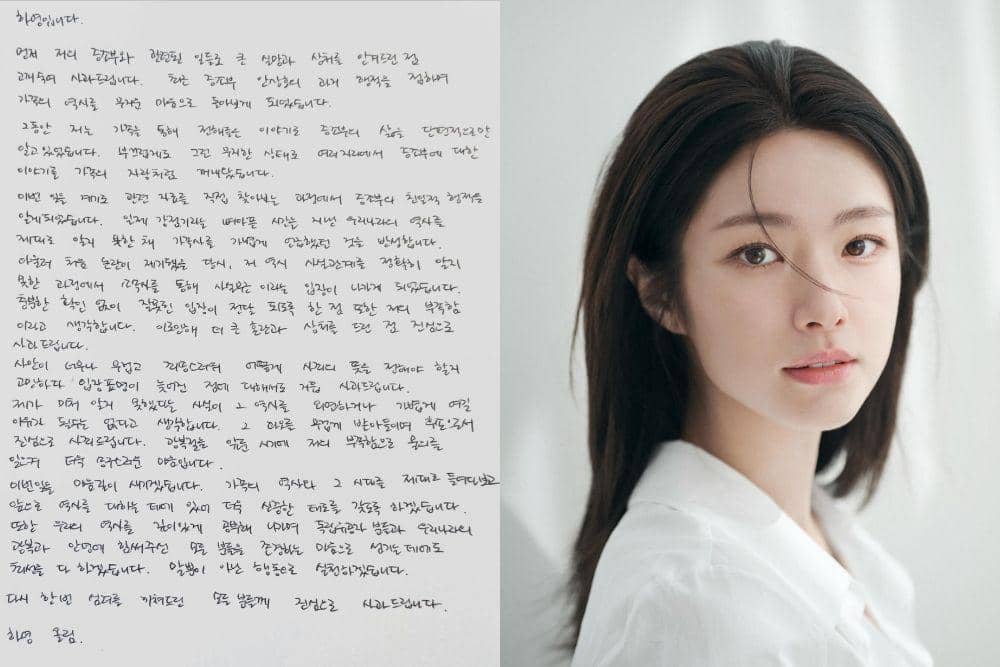 하영입니다.
먼저 저의 증조부와 관련된 일들로 큰 실망과 상처를 안겨드린 점
고개숙여 사과드립니다. 최근 증조부 안상호의 과거 행적을 접하며
가족의 역사를 무거운 마음으로 돌아보게 되었습니다.
그동안 저는 가족을 통해 전해들은 이야기로 증조부의 삶을 단편적으로만
알고 있었습니다. 부끄럽게도 그런 무지한 상태로 여러자리에서 증조부에 대한
이야기를 가족의 자랑처럼 꺼내었습니다.
이번 일을 계기로 관련 자료를 직접 찾아보는 과정에서 증조부의 친일적 행적을
알게되었습니다. 일제 강점기라는 뼈아픈 시간을 지닌 우리나라의 역사를
제대로 알지 못한 채 가족사를 가볍게 언급했던 것을 반성합니다.
아울러 처음 논란이 제기됐을 당시, 저 역시 사실관계를 정확히 알지
못한 과정에서 회사를 통해 사실무근 이라는 입장이 나가게 되었습니다.
충분한 확인 없이 잘못된 입장이 전달 되도록 한 점 또한 저의 부족함
이라고 생각합니다. 이로인해 더 큰 혼란과 상처를 드린 점 진심으로
사과드립니다.
사안이 너무나 무겁고 죄송스러워 어떻게 사죄의 뜻을 전해야 할지
고민하다 입장표명이 늦어진 점에 대해서도 거듭 사과드립니다.
제가 미처 알지 못했다는 사실이 그 역사를 외면하거나 가볍게 여길
이유가 될수는 없다고 생각합니다. 그 과오를 무겁게 받아들이며 후손으로서
진심으로 사죄드립니다. 광복절을 앞둔 시기에 저의 부족함으로 물의를
일으켜 더욱 송구스러운 마음입니다.
이번일을 마음깊이 새기겠습니다. 가족의 역사와 그 시대를 제대로 들여다보고
앞으로 역사를 대하는 데에 있어 더욱 신중한 태도를 갖도록 하겠습니다.
또한 우리의 역사를 깊이있게 공부해 나가며 독립유공자 분들과 우리나라의
광복과 안녕에 힘써주신 모든 분들을 존경하는 마음으로 섬기는 데에도
최선을 다 하겠습니다. 말뿐이 아닌 행동으로 실천하겠습니다.
다시 한번 심려를 끼쳐드린 모든 분들께 진심으로 사과드립니다.
하영 올림.